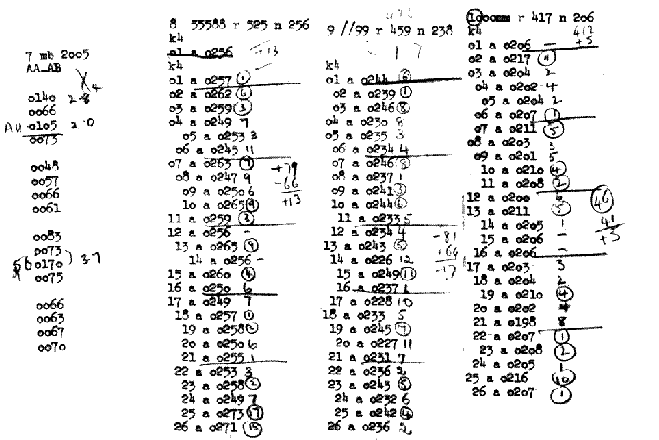 7 mb 2005
AA_AB
0140 2.8
0066
0105 2.0
0073
0048
0057
0066
0061
0083
0073
0170 3.7
0075
0066
0063
0067
0070
8 55588 r 525 n 256
k4
01 a 0256
k4
01 a 0257 1
02 a 0262 6
03 a 0259 3
04 a 0249 7
05 a 0253 3
06 a 0245 11
07 a 0265 9
08 a 0247 9
09 a 0250 6
10 a 0265 9
11 a 0259 3
12 a 0256 -
13 a 0265 9
14 a 0256 -
15 a 0260 4
16 a 0250 6
17 a 0249 7
18 a 0257 1
19 a 0258 2
20 a 0250 6
21 a 0255 1
22 a 0253 3
23 a 0258 2
24 a 0249 7
25 a 0273 17
26 a 0271 15
+79
-66
+13
9 //99 r 459 n 238
17
k4
01 a 0244
02 a 0239 1
03 a 0246 8
04 a 0230 8
05 a 0235 3
06 a 0234 4
07 a 0246 8
08 a 0237 1
09 a 0241 3
10 a 0244 6
11 a 0233 5
12 a 0234 4
13 a 0243 5
14 a 0226 12
15 a 0249 11
16 a 0237
17 a 0228 10
18 a 0233 5
19 a 0245 7
20 a 0227 11
21 a 0231 7
22 a 0236 2
23 a 0243 5
24 a 0232 6
25 a 0242 4
26 a 0236 2
-81
+64
-17
r 417 n 206
k4
+5
01 a 0206 -
02 a 0217
03 a 0204 2
04 a 0202 4
05 a 0204 2
06 a 0207 1
07 a 0211 5
08 a 0203
09 a 0201 5
10 a 0210 4
11 a 0208 2
12 a 0200
13 a 0211 5
14 a 0205 1
15 a 0206 -
16 a 0206 -
17 a 0203 3
18 a 0204 2
19 a 0210 4
20 a 0202 4
21 a 0198 8
22 a 0207 1
23 a 0208 2
24 a 0205 1
25 a 0216 10
26 a 0207 1
46
41
+5